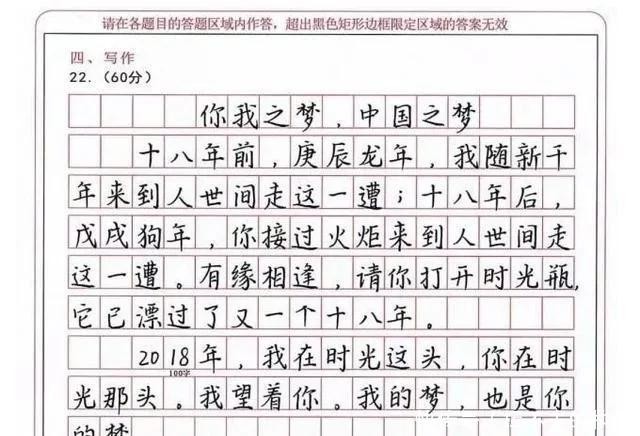 请在各题目的答题区域内作答，超出黑色矩形边框限定区域的答案无效
四、写作
22.（60分）
你我之梦，中国之梦
十八年前，庚辰龙年，我随新千
年来到人世间走这一遭；十八年后，
戊戌狗年，你接过火炬来到人世间走
这一遭。有缘相逢，请你打开时光瓶，
它已漂过了又一个十八年。
2018年，我在时光这头，你在时
100字
光那头。我望着你。我的梦，也是你
的梦